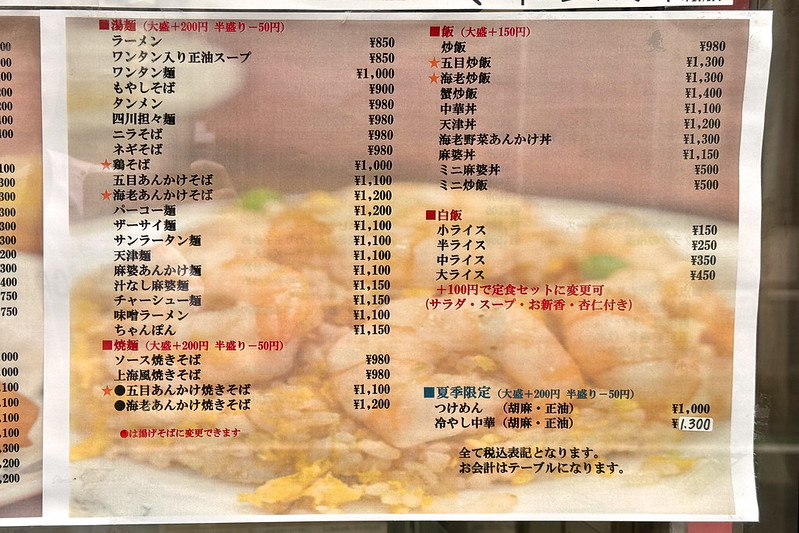 ■湯麺 (大盛＋200円 半盛り－50円)
ラーメン ¥850
ワンタン入り正油スープ ¥850
ワンタン麺 ¥1,000
もやしそば ¥900
タンメン ¥980
四川担々麺 ¥980
ニラそば ¥980
ネギそば ¥980
★鶏そば ¥1,000
五目あんかけそば ¥1,100
★海老あんかけそば ¥1,200
パーコー麺 ¥1,200
ザーサイ麺 ¥1,100
サンラータン麺 ¥1,100
天津麺 ¥1,100
麻婆あんかけ麺 ¥1,100
汁なし麻婆麺 ¥1,150
チャーシュー麺 ¥1,150
味噌ラーメン ¥1,100
ちゃんぽん ¥1,150
■焼麺 (大盛＋200円 半盛り－50円)
ソース焼きそば ¥980
上海風焼きそば ¥980
★●五目あんかけ焼きそば ¥1,100
●海老あんかけ焼きそば ¥1,200
●は揚げそばに変更できます
■飯 (大盛＋150円)
炒飯 ¥980
★五目炒飯 ¥1,300
★海老炒飯 ¥1,300
蟹炒飯 ¥1,400
中華丼 ¥1,100
天津丼 ¥1,200
海老野菜あんかけ丼 ¥1,300
麻婆丼 ¥1,150
ミニ麻婆丼 ¥500
ミニ炒飯 ¥500
■白飯
小ライス ¥150
半ライス ¥250
中ライス ¥350
大ライス ¥450
＋100円で定食セットに変更可
(サラダ・スープ・お新香・杏仁付き)
■夏季限定 (大盛＋200円 半盛り－50円)
つけめん (胡麻・正油) ¥1,000
冷やし中華 (胡麻・正油) ¥1,300
全て税込表記となります。
お会計はテーブルになります。